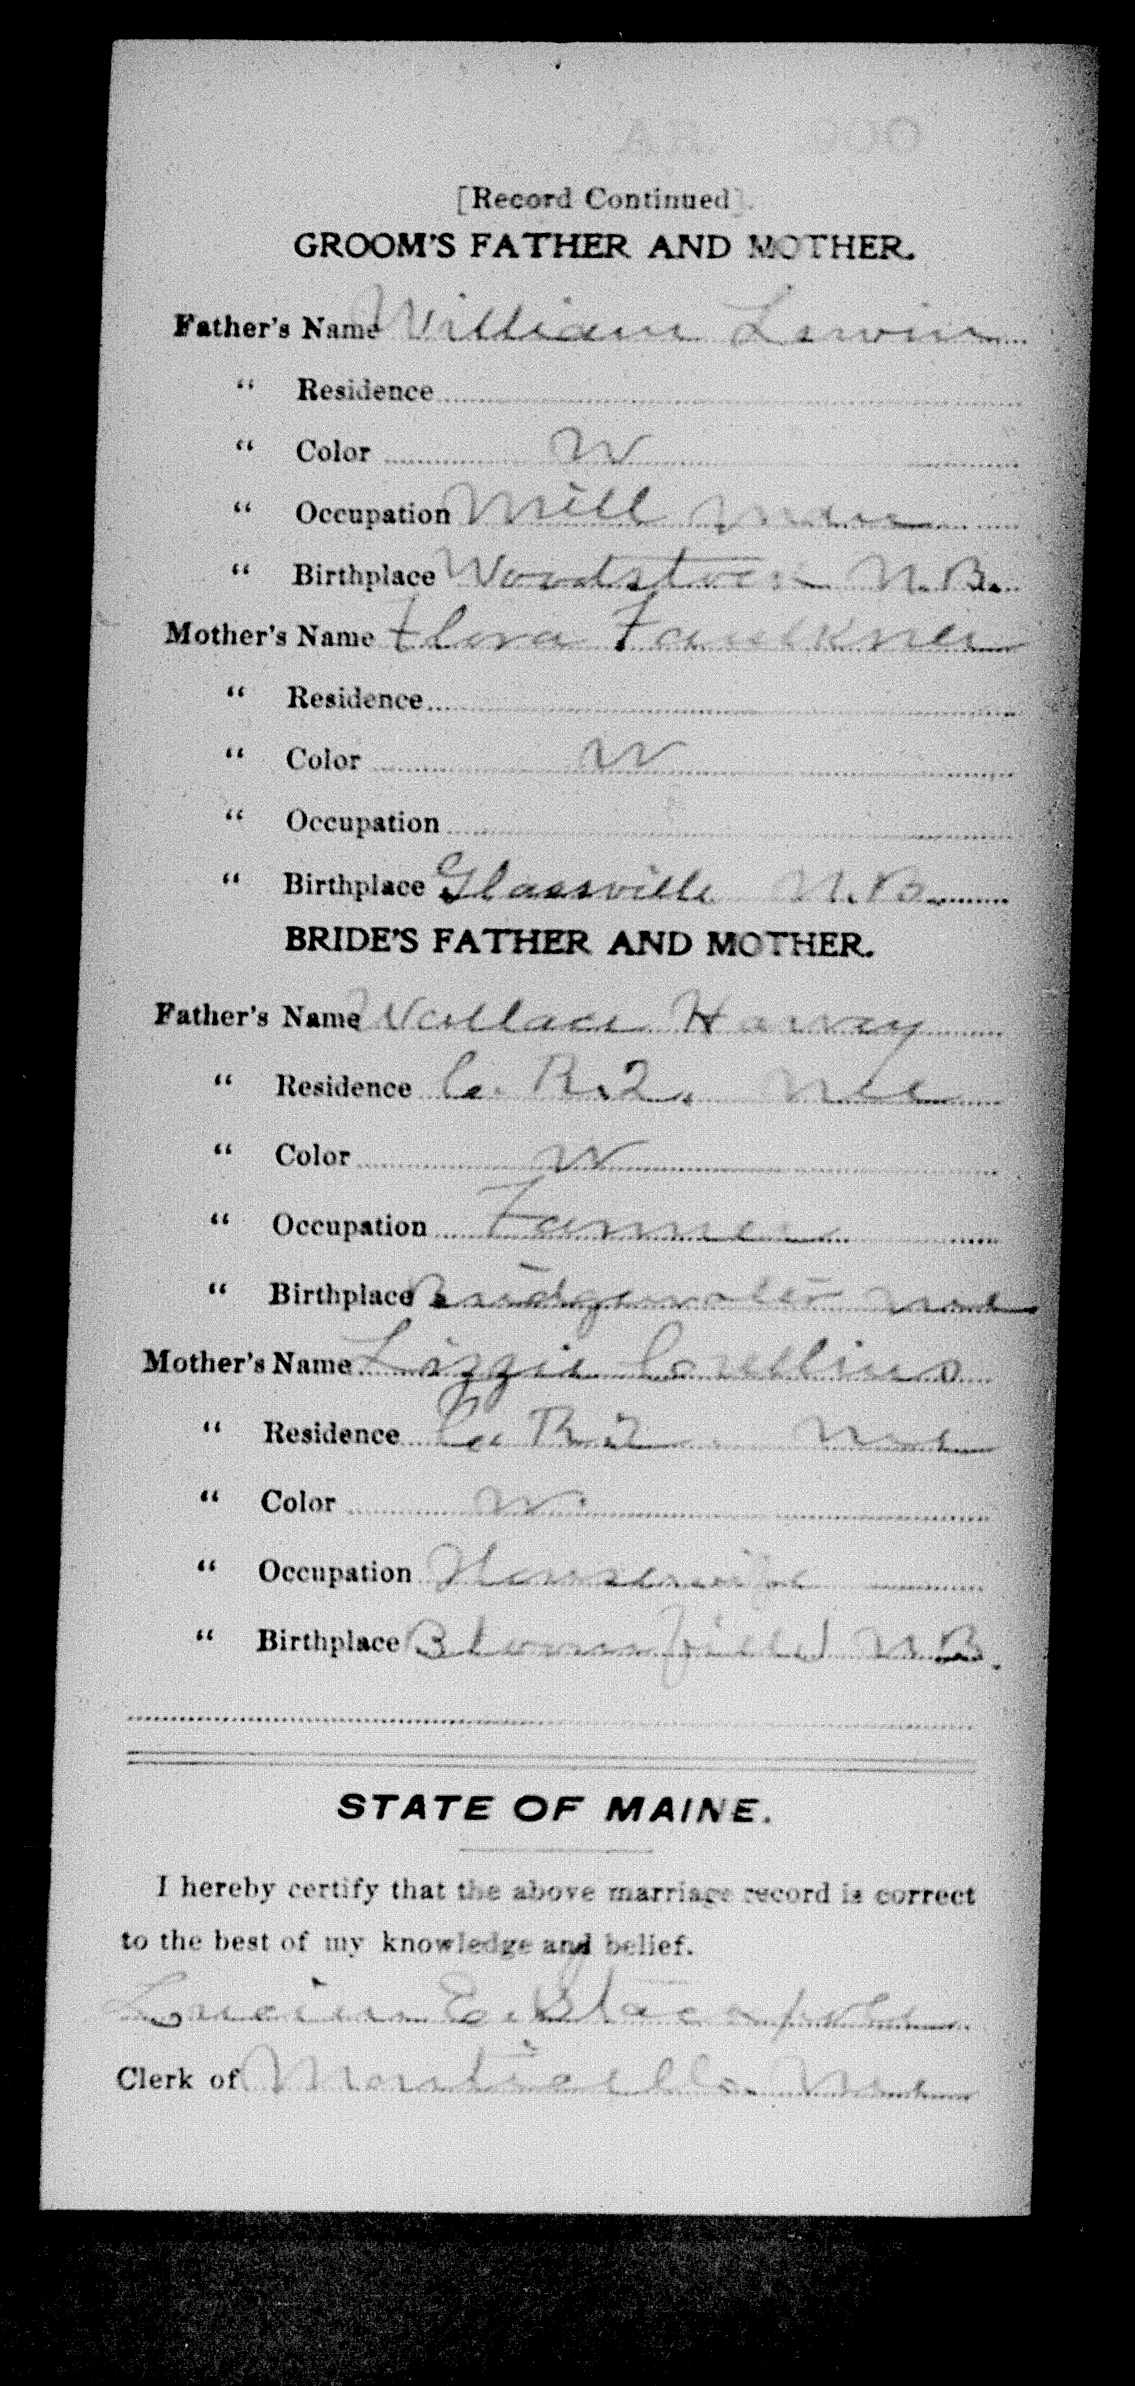 [Record Continued].
GROOM'S FATHER AND MOTHER.
Father's Name William Lewin
" Residence
" Color W
" Occupation Mill man
" Birthplace Woodstock N.B.
Mother's Name Flora Faulkner
" Residence
" Color W
" Occupation
" Birthplace Glassville N.B.
BRIDE'S FATHER AND MOTHER.
Father's Name Wallace Harvey
" Residence R.2. Me
" Color W
" Occupation Farmer
" Birthplace Bridgewater Me
Mother's Name Lizzie
" Residence R 2 Me
" Color W
" Occupation Housewife
" Birthplace Bloomfield N.B.
STATE OF MAINE.
I hereby certify that the above marriage record is correct
to the best of my knowledge and belief.
Lucius E. Stackpole
Clerk of Monticello Me